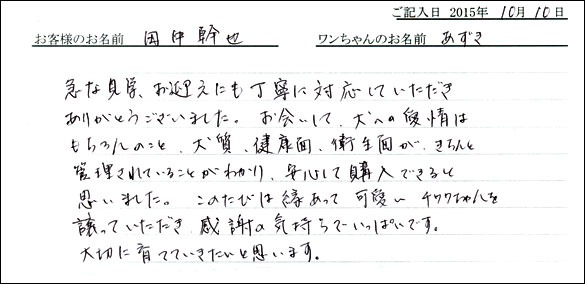 ご記入日 2015年 10月 10日
お客様のお名前 田中幹也 ワンちゃんのお名前 あずき
急な見学、お迎えにも丁寧に対応していただき
ありがとうございました。 お会いして、犬への愛情は
もちろんのこと、犬質、健康面、衛生面が、きちんと
管理されていることがわかり、安心して購入できると
思いました。 このたびは縁あって 可愛い チワワちゃんを
譲っていただき 感謝の気持ちでいっぱいです。
大切に育てていきたいと思います。